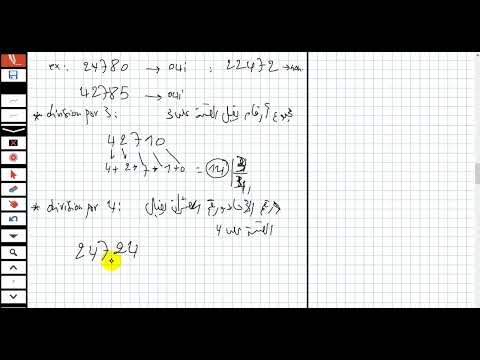 ex: 24780 → oui ; 22472 → non
42785 → oui
* division par 3: مجموع أرقام يقبل القسمة على 3
42710
4+2+7+1+0 = 14
* division par 4: رقم الآحاد ورقم العشرات يقبل
القسمة على 4
24724